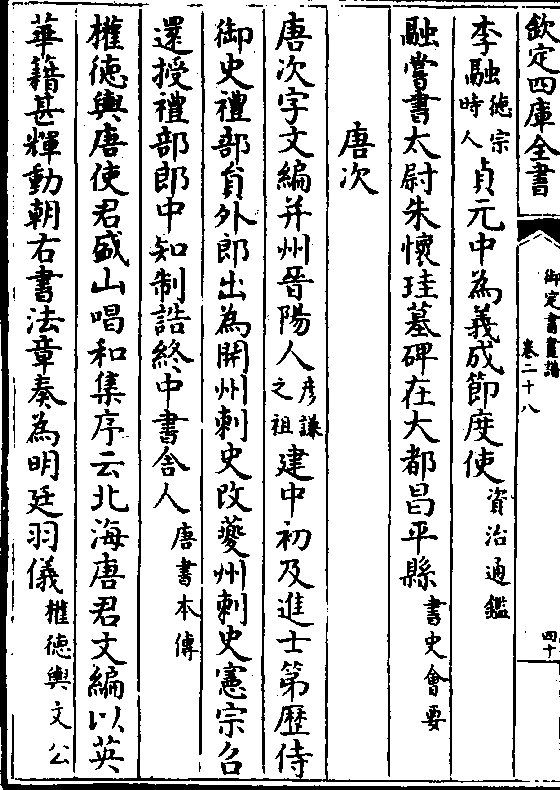 欽定四庫全書
御定書畫譜
卷二十八
四十
李融德宗時人貞元中為義成節度使資治通鑑
融嘗書太尉朱懷珪墓碑在大都昌平縣書史會要
唐次
唐次字文編并州晉陽人彦謙之祖建中初及進士第歷侍
御史禮部員外郎出為開州刺史改夔州刺史憲宗召
還授禮部郎中知制誥終中書舍人唐書本傳
權德輿唐使君盛山唱和集序云北海唐君文編以英
華籍甚輝動朝右書法章奏為明廷羽儀權德輿文公